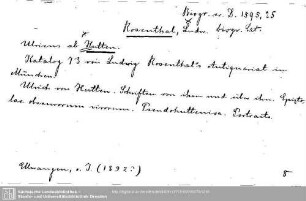 Biogr. s. D. 1893, 25
Rosenthal, Ludw. biogr. Lit.
Ulricus ab Hutten.
Katalog 73 von Ludwig Rosenthal's Antiquariat in
München.
Ulrich von Hutten. Schriften von ihm und über ihn. Episto-
lae obscurorum virorum. Pseudohuttenica. Portraits.
Ellwangen, o. J. (1892?)
8
Sächsische Landesbibliothek -
Staats- und Universitätsbibliothek Dresden